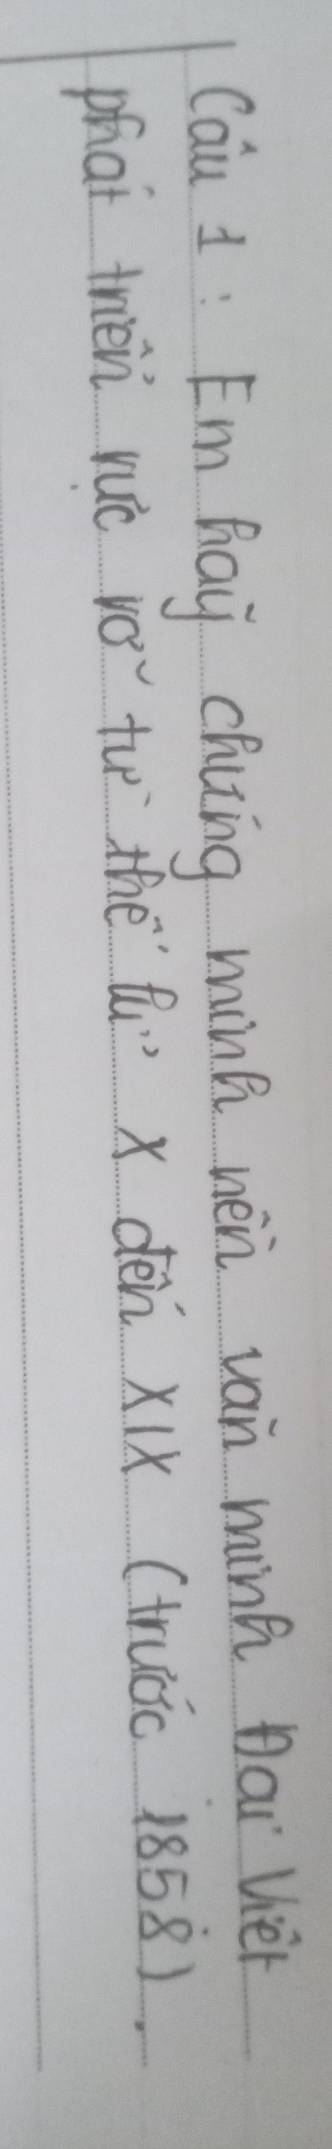 Câu 1 : Em hãy chứng minh nền văn minh Đại Việt
phát triển rực rỡ từ thế kỉ X đến XIX (trước 1858).